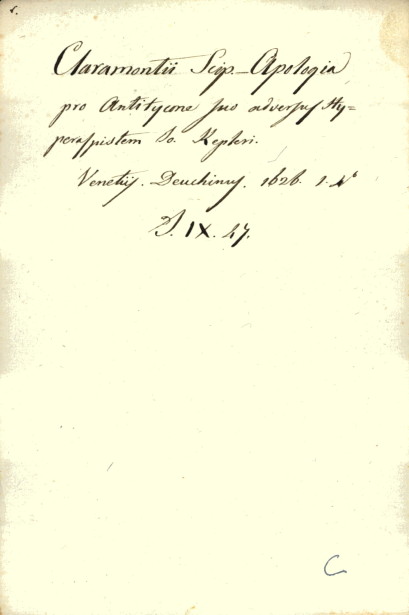 Claramontii Scip. Apologia
pro Antitycone suo adversus Hy=
peraspistem Jo. Kepleri.
Venetiis. Deuchinus. 1626. 1. 4°
D. IX. 47.
C